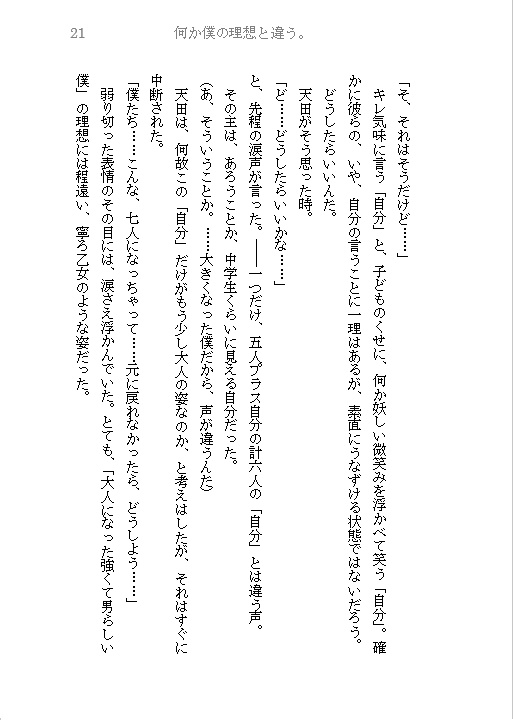 21
何か僕の理想と違う。
「そ、それはそうだけど……」
キレ気味に言う「自分」と、子どものくせに、何か妖しい微笑みを浮かべて笑う「自分」。確
かに彼らの、いや、自分の言うことに一理はあるが、素直にうなずける状態ではないだろう。
どうしたらいいんだ。
天田がそう思った時。
「ど……どうしたらいいかな……」
と、先程の涙声が言った。――一つだけ、五人プラス自分の計六人の「自分」とは違う声。
その主は、あろうことか、中学生くらいに見える自分だった。
（あ、そういうことか。……大きくなった僕だから、声が違うんだ）
天田は、何故この「自分」だけがもう少し大人の姿なのか、と考えはしたが、それはすぐに
中断された。
「僕たち……こんな、七人になっちゃって……元に戻れなかったら、どうしよう……」
弱り切った表情のその目には、涙さえ浮かんでいた。とても、「大人になった強くて男らしい
僕」の理想には程遠い、寧ろ乙女のような姿だった。